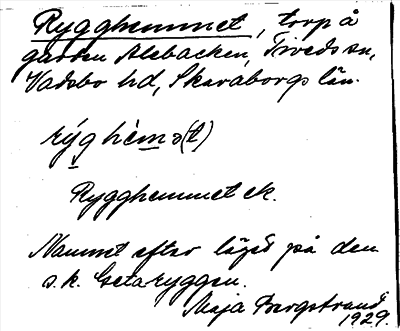 Rygghemmet, torp å
gården Alebacken, Tiveds sn,
Vadsbo hd, Skaraborgs län.
rýg hèmə(t)
Rygghemmet ek.
Namnet efter läget på den
s.k. Getaryggen.
Maja Bergstrand
1929.